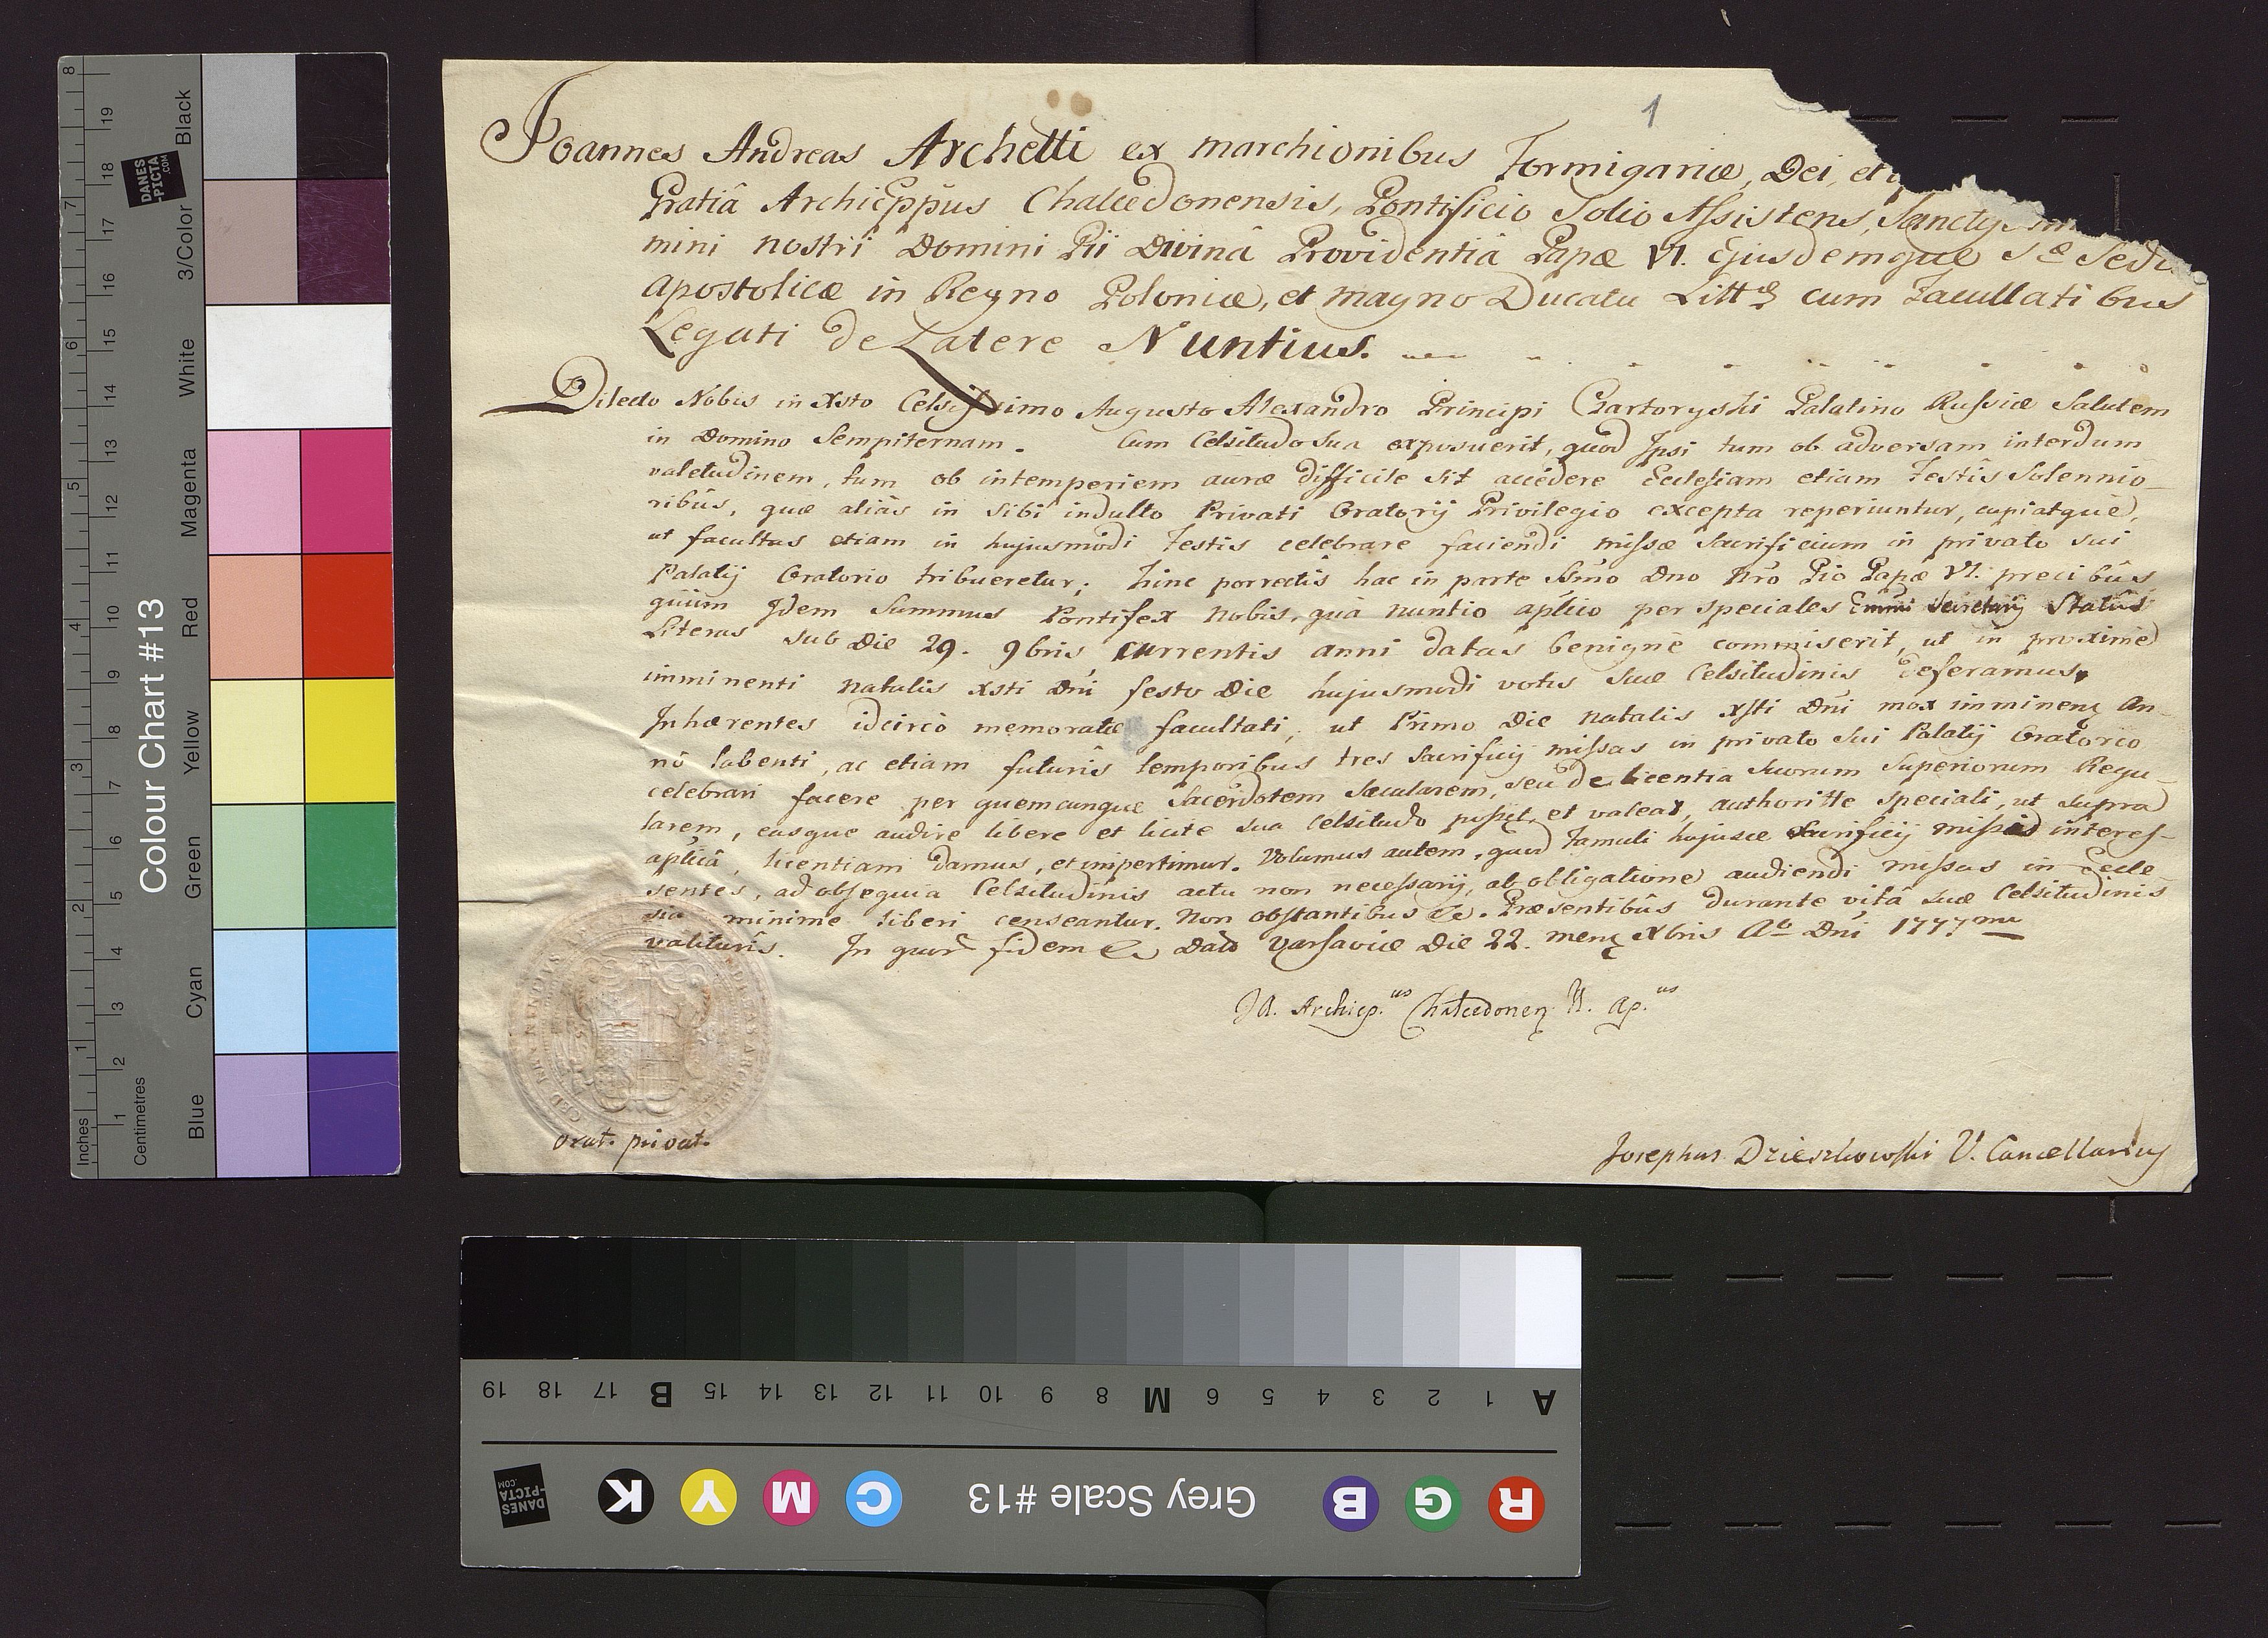 1
Joannes Andreas Archetti ex marchionibus Formigariæ, Dei, et
Gratiâ Archiep̄p̄us Chalcedonensis, Pontificio Solio Assistens,
mini nostri Domini Pii Divinâ Providentiâ Papæ VI. Ejusdemque Sæ Sedis
Apostolicæ in Regno Poloniæ, et Magno Ducatu Littæ cum Facultatibus
Legati de Latere Nuntius.
Dilecto Nobis in Xsto Celsissimo Augusto Alexandro Principi Czartoryski Palatino Russiæ Salutem
in Domino Sempiternam. Cum Celsitudo Sua exposuerit, quod Ipsi tum ob adversam interdum
valetudinem, tum ob intemperiem auræ difficile sit accedere Ecclesiam etiam Festis Solennio-
ribûs, quæ aliàs in sibi indulto Privati Oratorij Privilegio excepta reperiuntur, cupiatquè,
ut facultas etiam in hujusmodi Festis celebrare faciendi missæ Sacrificium in privato sui
Palatij Oratorio tribueretur; hinc porrectis hac in parte Ssmo Dno Nro Pio Papæ VI. precibûs
quum Idem Summus Pontifex Nobis, quà nuntio aplico per speciales Emmi Secretarij Statûs
Literas sub Die 29. 9bris currentis anni datas benignè commiserit, ut in proximè
imminenti natalis xsti Dni festo Die hujusmodi votis suæ Celsitudinis deferamus.
Inhærentes idcircò memoratæ facultati, ut Primo Die natalis xsti Dni mox imminens An-
nô labenti, ac etiam futuris temporibus tres Sacrificij missas in privato sui Palatij Oratorio
celebrari facere per quemcunque Sacerdotem Sæcularem, seu de licentia Suorum Superiorum Regu-
larem, easque audire libere et licite sua Celsitudo possit, et valeat, authoritte speciali, ut supra
aplicâ, licentiam damus, et impertimur. Volumus autem, quod Famuli hujusce Sacrificij missæ interes-
sentes, ad obsequia Celsitudinis actu non necessarij, ab obligatione audiendi missas in Eccle-
sia minime liberi censeantur. Non obstantibus &c. Præsentibûs durante vitâ suæ Celsitudinis
valituris. In quor fidem &c Dato Varsaviæ Die 22. mens Xbris Ao Dni 1777mo
JA. Archiep.us Chalcedonen N. Ap.us
Orat. privat.
Josephus Dzieszkowski V. Cancellarius
Colour Chart #13
Inches 1 2 3 4 5 6 7 8
Centimetres 1 2 3 4 5 6 7 8 9 10 11 12 13 14 15 16 17 18 19
Blue Cyan Green Yellow Red Magenta White 3/Color Black
DANES
-PICTA
.COM
A 1 2 3 4 5 6 M 8 9 10 11 12 13 14 15 B 17 18 19
R G B Grey Scale #13 C M Y K
DANES
-PICTA
.COM